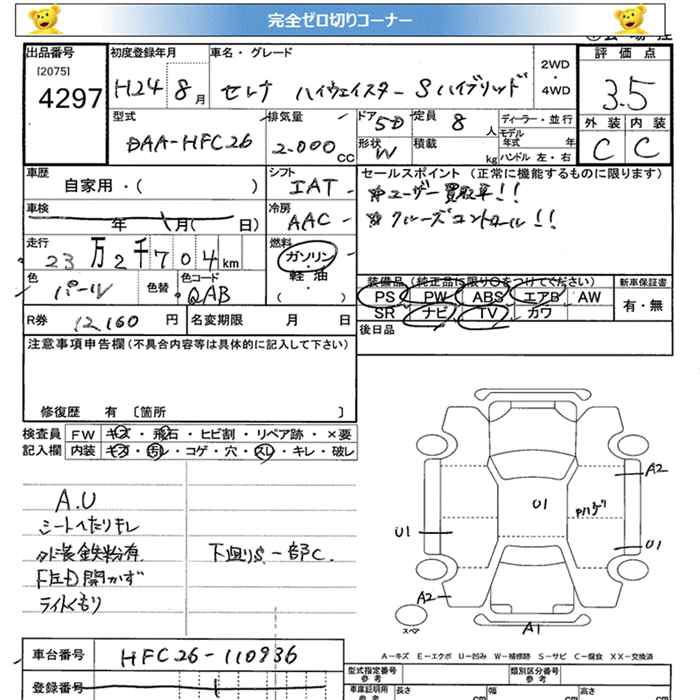 完全ゼロ切りコーナー
出品番号
[2075]
4297
初度登録年月
H24 8月
車名・グレード
セレナ ハイウェイスター Sハイブリッド
2WD
・
4WD
評価点
3.5
外装 内装
C C
型式
DAA-HFC26
排気量
2.000 CC
ドア
5D
定員
8 人
形状
W
積載
kg
ディーラー・並行
モデル
年式 年
ハンドル 左・右
車歴
自家用・( )
シフト
IAT
車検
年 月( 日)
冷房
AAC
走行
23万2千704km
燃料
ガソリン
・
軽油
( )
色
パール
色替
色コード
QAB
R券
12,160 円
名変期限 月 日
セールスポイント (正常に機能するものに限ります)
※ユーザー買取車!!
※クルーズコントロール!!
装備品(純正品に限り○をつけてください)
PS PW ABS エアB AW
SR ナビ TV カワ
新車保証書
有・無
後日品
注意事項申告欄(不具合内容等は具体的に記入して下さい)
修復歴 有 〔箇所 〕
検査員 FW キズ・飛石・ヒビ割・リペア跡・×要
記入欄 内装 キズ・汚レ・コゲ・穴・スレ・キレ・破レ
A.U
シートへたりキレ
外装鉄粉有 下廻りS一部C.
F左D開かず
ライトくもり
A2
U1
Pハゲ
U1
U1
A2
スペア
A1
A-キズ E-エクボ U-凹み W-補修跡 S-サビ C-腐食 XX-交換済
車台番号
HFC26-110936
登録番号
型式指定番号
参考
類別区分番号
参考
車庫証明用
参考
長さ cm
幅 cm
高さ cm